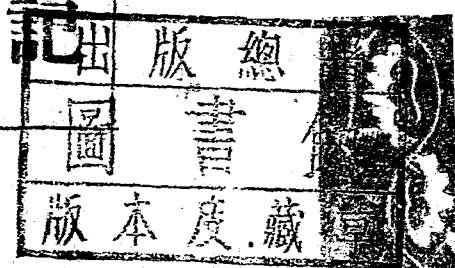 記
出版總
圖書
版本庋藏章